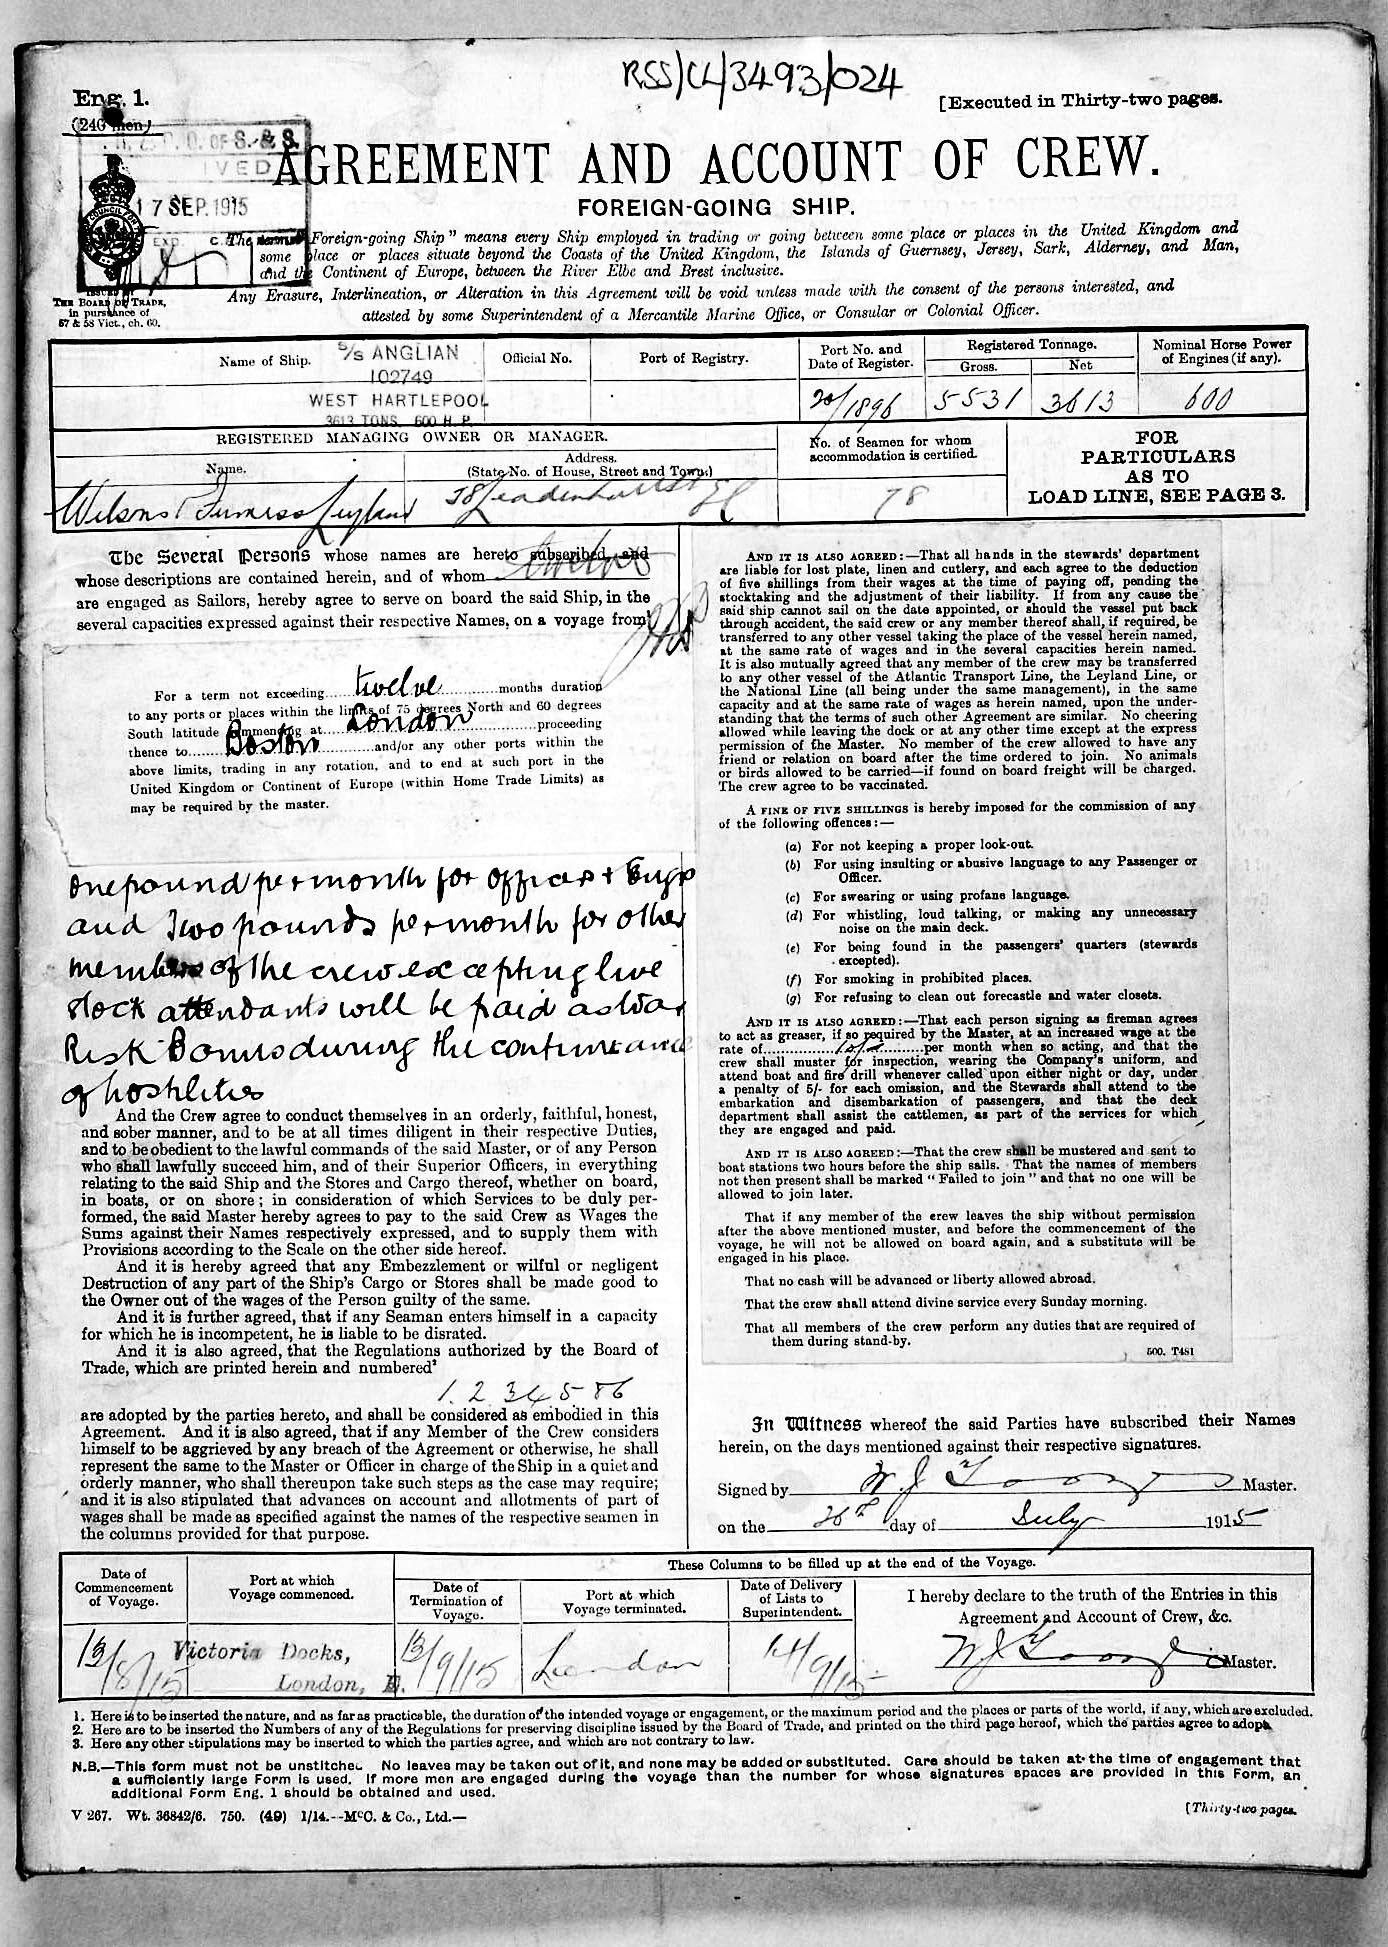 RSS/CL/3493/024
Eng. 1.
(240 men)
[Executed in Thirty-two pages.
OF S. & S.
IVED
17 SEP. 1915
AGREEMENT AND ACCOUNT OF CREW.
FOREIGN-GOING SHIP.
The term "Foreign-going Ship" means every Ship employed in trading or going between some place or places in the United Kingdom and
some place or places situate beyond the Coasts of the United Kingdom, the Islands of Guernsey, Jersey, Sark, Alderney, and Man,
and the Continent of Europe, between the River Elbe and Brest inclusive.
Any Erasure, Interlineation, or Alteration in this Agreement will be void unless made with the consent of the persons interested, and
attested by some Superintendent of a Mercantile Marine Office, or Consular or Colonial Officer.
ISSUED BY
THE BOARD OF TRADE,
in pursuance of
57 & 58 Vict., ch. 60.
Name of Ship.
S/S ANGLIAN
102749
WEST HARTLEPOOL
3613 TONS. 600 H.P.
Official No.
Port of Registry.
Port No. and
Date of Register.
20/1896
Registered Tonnage.
Gross.
Net
5531
3613
Nominal Horse Power
of Engines (if any).
600
REGISTERED MANAGING OWNER OR MANAGER.
Name.
Address.
(State No. of House, Street and Town.)
Wilsons Furness Leyland
38 Leadenhall St EC
No. of Seamen for whom
accommodation is certified.
78
FOR
PARTICULARS
AS TO
LOAD LINE, SEE PAGE 3.
The Several Persons whose names are hereto subscribed, and
whose descriptions are contained herein, and of whom twelve
are engaged as Sailors, hereby agree to serve on board the said Ship, in the
several capacities expressed against their respective Names, on a voyage from¹
For a term not exceeding twelve months duration
to any ports or places within the limits of 75 degrees North and 60 degrees
South latitude commencing at London proceeding
thence to Boston and/or any other ports within the
above limits, trading in any rotation, and to end at such port in the
United Kingdom or Continent of Europe (within Home Trade Limits) as
may be required by the master.
One pound per month for officers & Engrs
and Two pounds per month for other
members of the crew excepting live
stock attendants will be paid as War
Risk Bonus during the continuance
of hostilities
And the Crew agree to conduct themselves in an orderly, faithful, honest,
and sober manner, and to be at all times diligent in their respective Duties,
and to be obedient to the lawful commands of the said Master, or of any Person
who shall lawfully succeed him, and of their Superior Officers, in everything
relating to the said Ship and the Stores and Cargo thereof, whether on board,
in boats, or on shore; in consideration of which Services to be duly per-
formed, the said Master hereby agrees to pay to the said Crew as Wages the
Sums against their Names respectively expressed, and to supply them with
Provisions according to the Scale on the other side hereof.
And it is hereby agreed that any Embezzlement or wilful or negligent
Destruction of any part of the Ship's Cargo or Stores shall be made good to
the Owner out of the wages of the Person guilty of the same.
And it is further agreed, that if any Seaman enters himself in a capacity
for which he is incompetent, he is liable to be disrated.
And it is also agreed, that the Regulations authorized by the Board of
Trade, which are printed herein and numbered²
1. 2 3 4 5 & 6
are adopted by the parties hereto, and shall be considered as embodied in this
Agreement. And it is also agreed, that if any Member of the Crew considers
himself to be aggrieved by any breach of the Agreement or otherwise, he shall
represent the same to the Master or Officer in charge of the Ship in a quiet and
orderly manner, who shall thereupon take such steps as the case may require;
and it is also stipulated that advances on account and allotments of part of
wages shall be made as specified against the names of the respective seamen in
the columns provided for that purpose.
AND IT IS ALSO AGREED:—That all hands in the stewards' department
are liable for lost plate, linen and cutlery, and each agree to the deduction
of five shillings from their wages at the time of paying off, pending the
stocktaking and the adjustment of their liability. If from any cause the
said ship cannot sail on the date appointed, or should the vessel put back
through accident, the said crew or any member thereof shall, if required, be
transferred to any other vessel taking the place of the vessel herein named,
at the same rate of wages and in the several capacities herein named.
It is also mutually agreed that any member of the crew may be transferred
to any other vessel of the Atlantic Transport Line, the Leyland Line, or
the National Line (all being under the same management), in the same
capacity and at the same rate of wages as herein named, upon the under-
standing that the terms of such other Agreement are similar. No cheering
allowed while leaving the dock or at any other time except at the express
permission of the Master. No member of the crew allowed to have any
friend or relation on board after the time ordered to join. No animals
or birds allowed to be carried—if found on board freight will be charged.
The crew agree to be vaccinated.
A FINE OF FIVE SHILLINGS is hereby imposed for the commission of any
of the following offences:—
(a) For not keeping a proper look-out.
(b) For using insulting or abusive language to any Passenger or
Officer.
(c) For swearing or using profane language.
(d) For whistling, loud talking, or making any unnecessary
noise on the main deck.
(e) For being found in the passengers' quarters (stewards
excepted).
(f) For smoking in prohibited places.
(g) For refusing to clean out forecastle and water closets.
AND IT IS ALSO AGREED:—That each person signing as fireman agrees
to act as greaser, if so required by the Master, at an increased wage at the
rate of 10/- per month when so acting, and that the
crew shall muster for inspection, wearing the Company's uniform, and
attend boat and fire drill whenever called upon either night or day, under
a penalty of 5/- for each omission, and the Stewards shall attend to the
embarkation and disembarkation of passengers, and that the deck
department shall assist the cattlemen, as part of the services for which
they are engaged and paid.
AND IT IS ALSO AGREED:—That the crew shall be mustered and sent to
boat stations two hours before the ship sails. That the names of members
not then present shall be marked "Failed to join" and that no one will be
allowed to join later.
That if any member of the crew leaves the ship without permission
after the above mentioned muster, and before the commencement of the
voyage, he will not be allowed on board again, and a substitute will be
engaged in his place.
That no cash will be advanced or liberty allowed abroad.
That the crew shall attend divine service every Sunday morning.
That all members of the crew perform any duties that are required of
them during stand-by.
500. T481
In Witness whereof the said Parties have subscribed their Names
herein, on the days mentioned against their respective signatures.
Signed by W. J. Master.
on the 26th day of July 1915
Date of
Commencement
of Voyage.
Port at which
Voyage commenced.
These Columns to be filled up at the end of the Voyage.
Date of
Termination of
Voyage.
Port at which
Voyage terminated.
Date of Delivery
of Lists to
Superintendent.
I hereby declare to the truth of the Entries in this
Agreement and Account of Crew, &c.
13/8/15
Victoria Docks,
London, E.
13/9/15
London
14/9/15
W J Master.
1. Here is to be inserted the nature, and as far as practicable, the duration of the intended voyage or engagement, or the maximum period and the places or parts of the world, if any, which are excluded.
2. Here are to be inserted the Numbers of any of the Regulations for preserving discipline issued by the Board of Trade, and printed on the third page hereof, which the parties agree to adopt.
3. Here any other stipulations may be inserted to which the parties agree, and which are not contrary to law.
N.B.—This form must not be unstitched. No leaves may be taken out of it, and none may be added or substituted. Care should be taken at the time of engagement that
a sufficiently large Form is used. If more men are engaged during the voyage than the number for whose signatures spaces are provided in this Form, an
additional Form Eng. 1 should be obtained and used.
V 267. Wt. 36842/6. 750. (49) 1/14.--McC. & Co., Ltd.—
[Thirty-two pages.